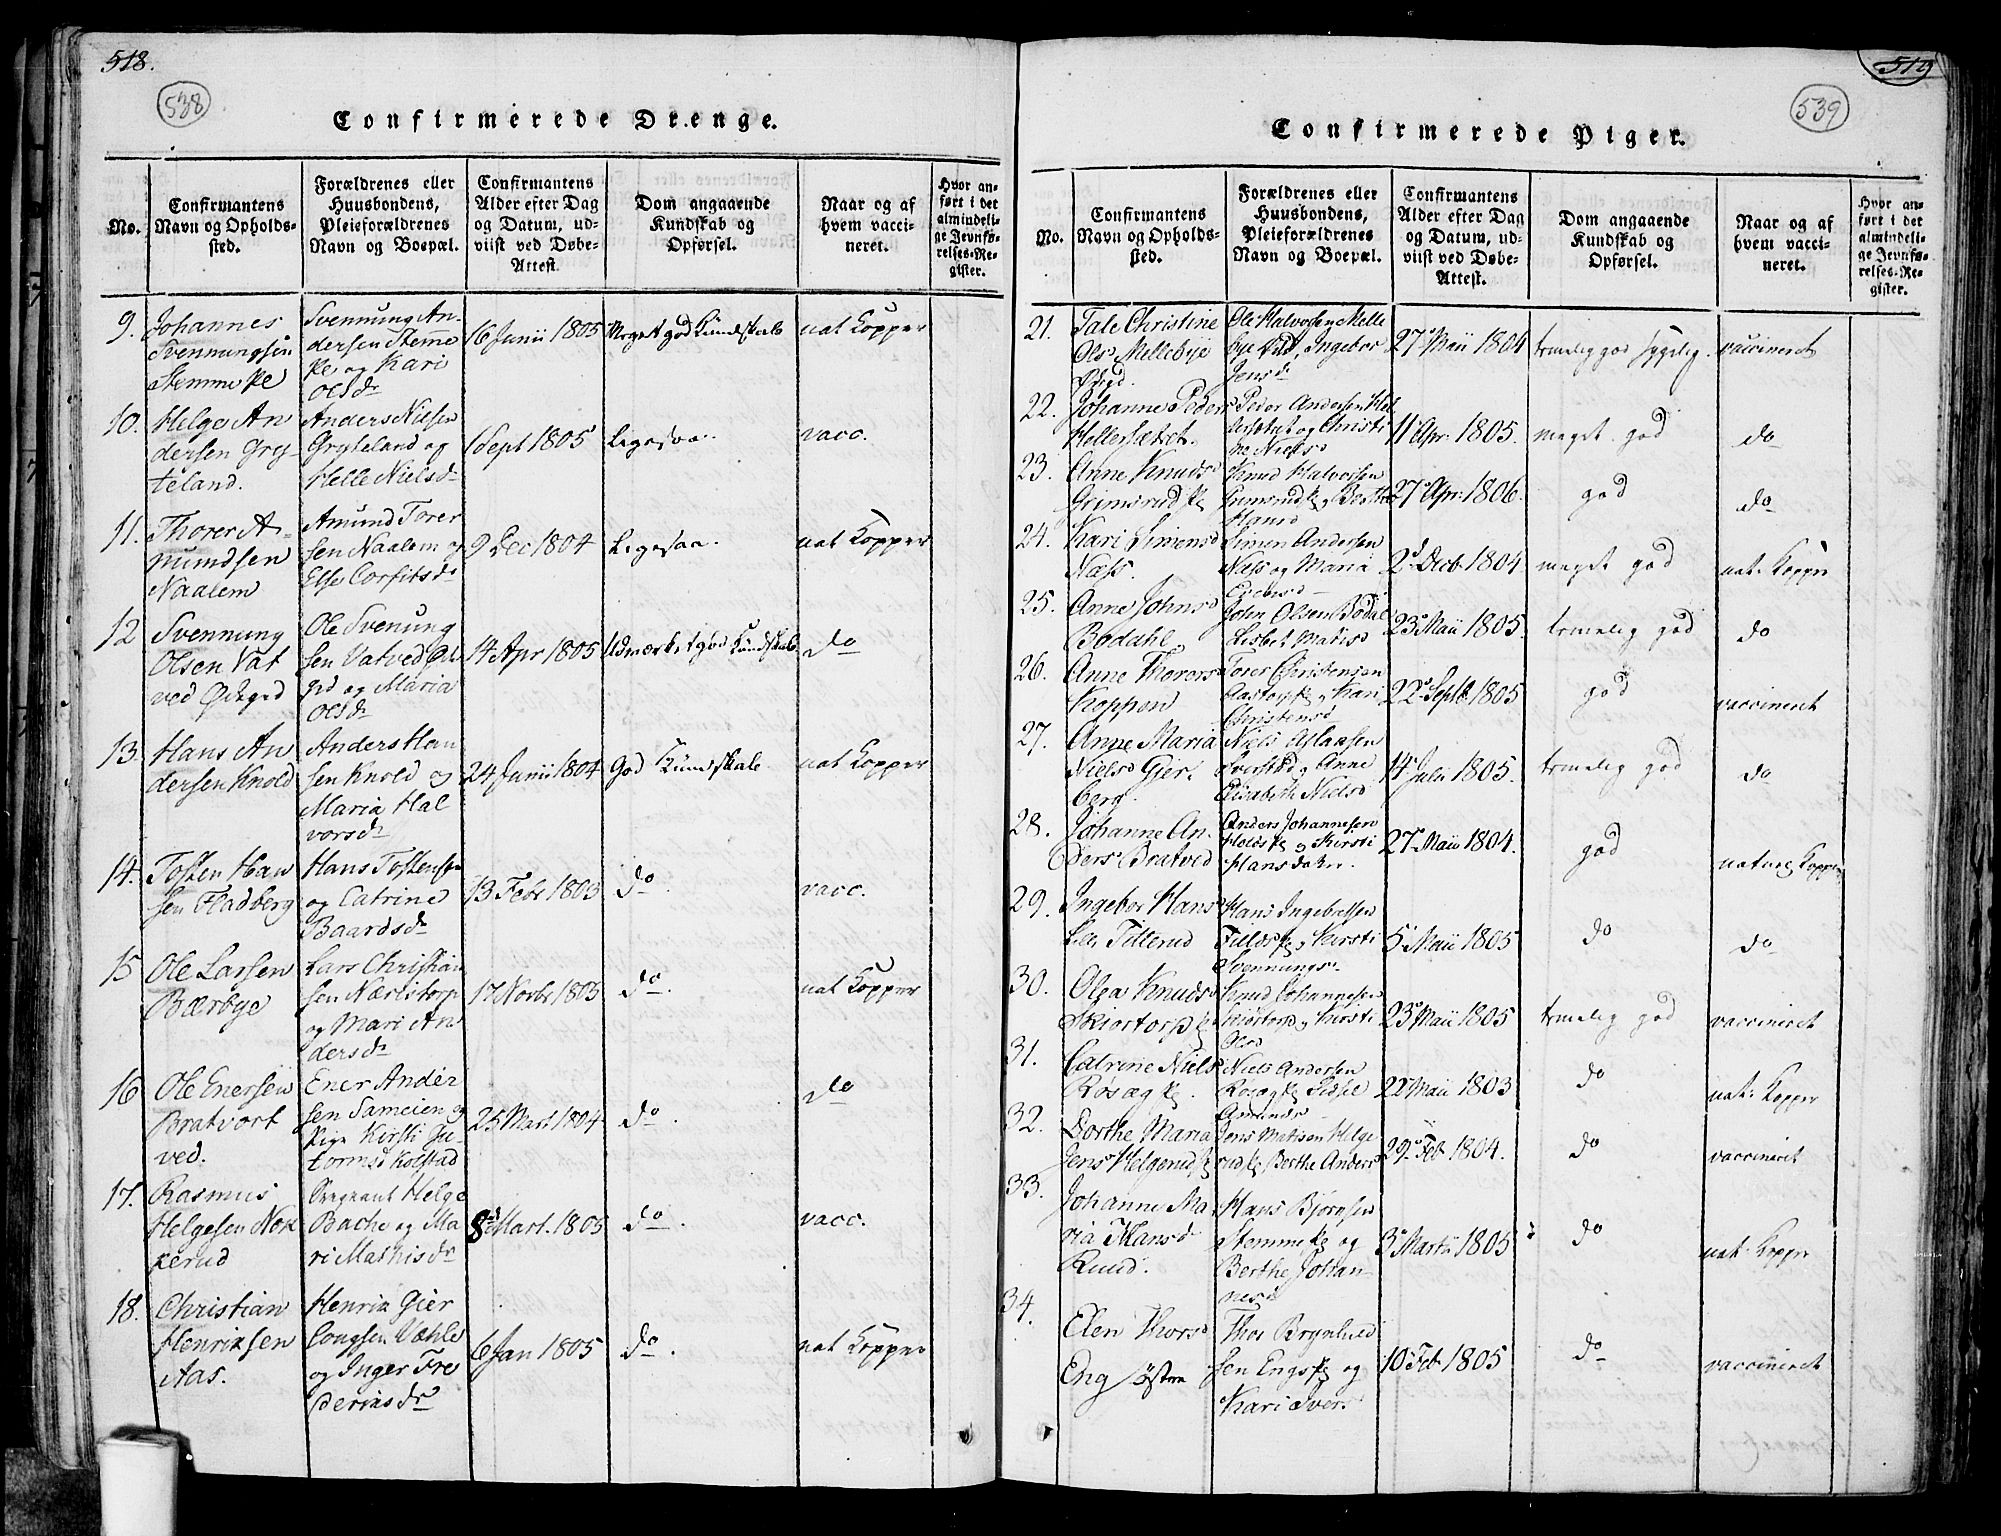 518.
538
Confirmerede Drenge.
No.
Confirmantens
Navn og Opholds-
sted.
Forældrenes eller
Huusbondens,
Pleieforældrenes
Navn og Boepæl.
Confirmantens
Alder efter Dag
og Datum, ud-
viist ved Døbe-
Attest.
Dom angaaende
Kundskab og
Opførsel.
Naar og af
hvem vacci-
neret.
Hvor an-
ført i det
almindeli-
ge Jevnfø-
relses-Re-
gister.
9. Johannes
Svennungsen
Stemme
Svennung An-
dersen Stemme
og Kari
Olsdr
16 Junii 1805
Meget god Kundskab
nat Kopper
10. Helge An
dersen Gry-
teland.
Anders Nielsen
Gryteland og
Helle Nielsdr
1 Sept 1805
Ligesaa.
vacc.
11. Thorer A-
mundsen
Naalem
Amund Torer
sen Naalem og
Else Corfitsdr
9 Dec 1804
Ligesaa.
nat Kopper
12 Svennung
Olsen Vat
ved
Ole Svenung
sen Vatved
og Maria
Olsdr
14 Apr 1805
Udmærket god Kundskab
do
13. Hans An
dersen Knold
Anders Han
sen Knold og
Maria Hal
vorsdr
24 Junii 1804
God Kundskab
nat Kopper
14. Tosten Han
sen Fladberg
Hans Tostensen
og Catrine
Baardsdr
13 Febr 1803
do.
vacc.
15 Ole Larsen
Bærbye
Lars Christian
sen Nærlstorp
og Mari An
dersdr
17 Novbr 1803
do.
nat Kopper
16 Ole Enersen
Bratvort
ved.
Ener Ander
sen Sameien og
Pige Kirsti Ju-
tormsd Kolstad
25 Mart 1804
do.
do
17. Rasmus
Helgesen Nok
kerud
Sergeant Helge
Bache og Ma
ri Mathisdr
8de Mart. 1805
do.
vacc.
18. Christian
Henriksen
Aas.
Henrik Gier
Longsen Væhle
og Inger Fre
deriksdr
6 Jan 1805
do.
nat Kopper
519
539
Confirmerede Piger.
No.
Confirmantens
Navn og Opholds-
sted.
Forældrenes eller
Huusbondens,
Pleieforældrenes
Navn og Boepæl.
Confirmantens
Alder efter Dag
og Datum, ud-
viist ved Døbe-
Attest.
Dom angaaende
Kundskab og
Opførsel.
Naar og af
hvem vacci-
neret.
Hvor an-
ført i det
almindeli-
ge Jevnfø-
relses-Re-
gister.
21. Tale Christine
Olsd Mellebye
Ole Halvorsen Melle
bye Ingebor
Jensd
27 Maii 1804
temelig god sygelig.
vaccineret
22. Johanne Peders
Hellesætret.
Peder Andersen Hel
lesætret og Christi
ne Nielsd
11 Apr. 1805.
meget god
do
23. Anne Knudsd
Grimsrud
Knud Halvorsen
Grimsrud og Berthe
Hansd
27 Apr. 1806.
god
do
24. Kari Simensd
Næss.
Simen Andersen
Næss og Maria
2d Decb 1804
meget god
nat. Kopper
25. Anne Johnsd
Bodahl
John Olsen Bodal
Lisbet Matisd
23 Maii 1805.
temelig god
do
26. Anne Thorers
Koppen
Torer Christensen
og Kari
Christensd
22 Septb 1805
god
vaccineret
27. Anne Maria
Nielsd Gier
berg.
Niels Aslaksen
og Anne
Elisabeth Nielsd
14 Julii 1805.
temelig god
do
28. Johanne An-
ders Bratved
Anders Johannesen
og Kirsti
Hansdatter.
27 Maii 1804.
god
nature Kopper
29. Ingebor Hans
Lille Tillerud
Hans Ingebretsen
og Kirsti
Svennungs
5 Maii 1805
do
do
30. Olea Knudsd
Skiortorp
Knud Johannesen
Skiortorp og Kirsti
Olsd
23 Maii 1805
temelig god
vaccineret
31. Catrine Niels
Røsæg
Niels Andersen
Røsæg Sidsel
Amunds
22 Maii 1803
do
nat. Kopper
32. Dorthe Maria
Jens Helgerud
Jens Matisen Helge
rud Berthe Anders
29 Feb 1804.
do
vaccineret
33. Johanne Ma
ria Hansd
Ruud.
Hans Bjørnsen
Stemme og
Berthe Johan-
nesd
3 Martii 1805
do
nat. Kopper
34. Elen Thorsd
Eng østre
Thor Brynhild
sen Engs og
Kari Ivers
10 Feb 1805
do
vaccineret